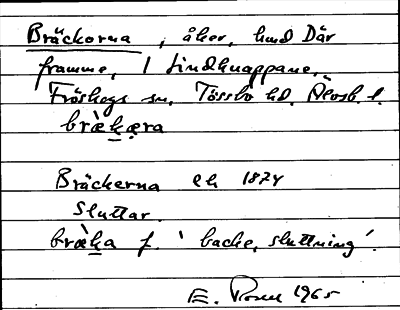 Bräckorna, åker, hmd Där
framme, i Lindknappane,
Fröskogs sn. Tössbo hd. Älvsb. l.
bræ̀kæra
Bräckerna ek 1874
Sluttar.
bræ̀ka f. 'backe, sluttning'.
E. Rosen 1965